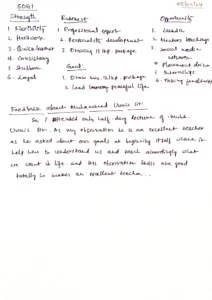 SOGI
Strength
1. Flexibility
2. Hardwork
3. Quick learner
4. Consistency
5. Stubborn
6. Loyal
Interest
1. Professional
2. Personality development
3. 12 lkp. package
Goal:
1. 12 lkp. package
2. Lead peaceful life.
Opportunity
1. LinkedIn
2. Mentors teachings
3. Social media
network
4. Placement drive
5. Internships
6. Taking feedbacks
Feedback about Muhammad Sir.
So, I attended only half-day lecture of Muhd.
Sir. As my observation he is an excellent teacher
as he asked about our goals at begining itself where it
help him to understand us and teach accordingly what
we want in life. and his observation skills are good
totally he makes an excellent teacher...